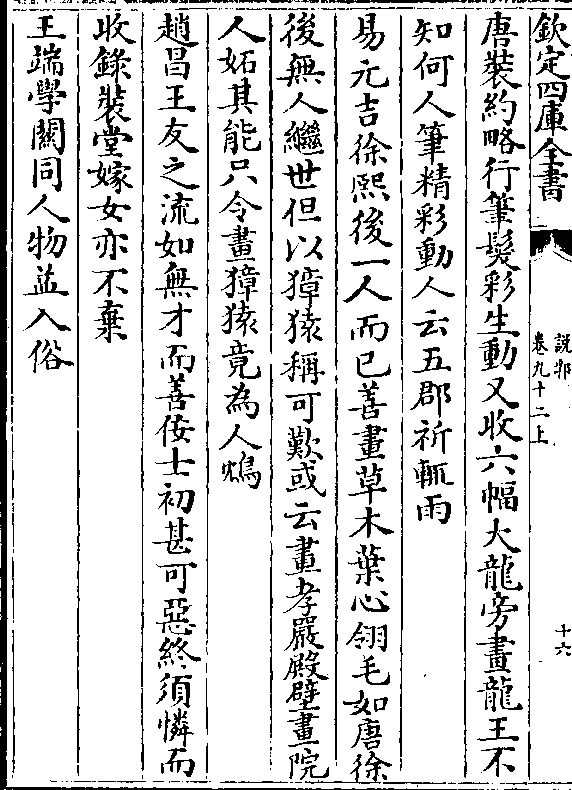 欽定四庫全書
說郛
卷九十二上
十六
唐裝約略行筆髮彩生動又收六幅大龍旁畫龍王不
知何人筆精彩動人云五郡祈輒雨
易元吉徐熙後一人而已善畫草木葉心翎毛如唐徐
後無人繼世但以獐猿稱可歎或云畫孝嚴殿壁畫院
人妬其能只令畫獐猿竟為人鴆
趙昌王友之流如無才而善佞士初甚可惡終須憐而
收錄裝堂嫁女亦不棄
王端學關同人物益入俗